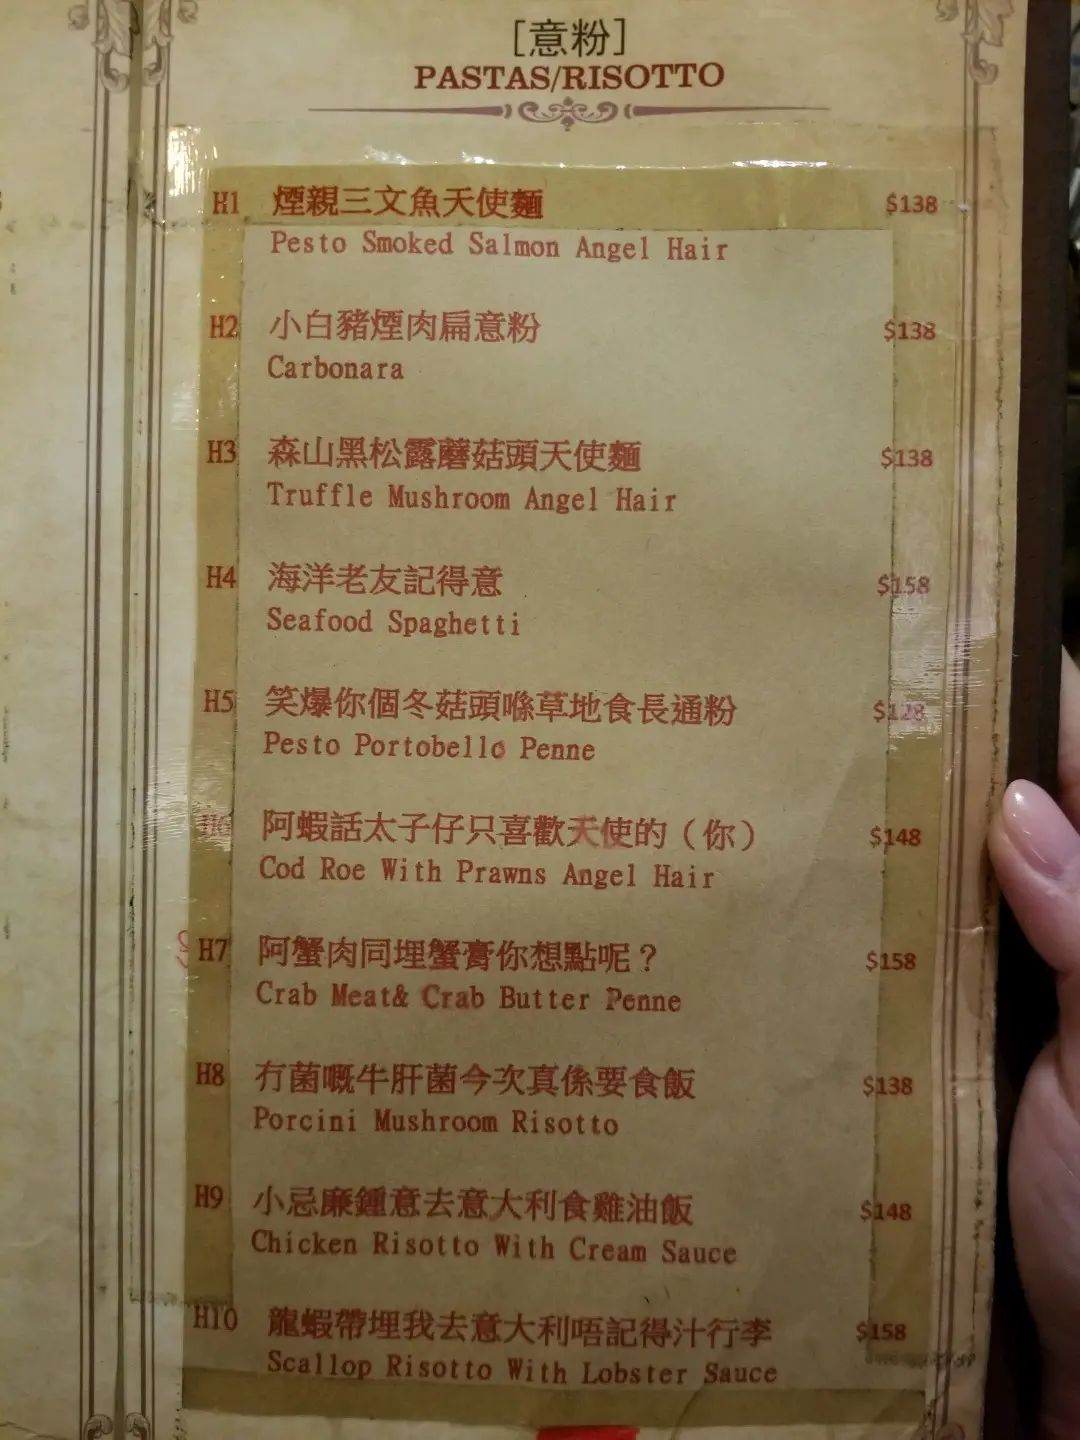 [意粉]
PASTAS/RISOTTO
H1 煙親三文魚天使麵 $138
Pesto Smoked Salmon Angel Hair
H2 小白豬煙肉扁意粉 $138
Carbonara
H3 森山黑松露蘑菇頭天使麵 $138
Truffle Mushroom Angel Hair
H4 海洋老友記得意 $158
Seafood Spaghetti
H5 笑爆你個冬菇頭喺草地食長通粉 $128
Pesto Portobello Penne
H6 阿蝦話太子仔只喜歡天使的（你） $148
Cod Roe With Prawns Angel Hair
H7 阿蟹肉同埋蟹膏你想點呢？ $158
Crab Meat& Crab Butter Penne
H8 冇菌嘅牛肝菌今次真係要食飯 $138
Porcini Mushroom Risotto
H9 小忌廉鍾意去意大利食雞油飯 $148
Chicken Risotto With Cream Sauce
H10 龍蝦帶埋我去意大利唔記得汁行李 $158
Scallop Risotto With Lobster Sauce